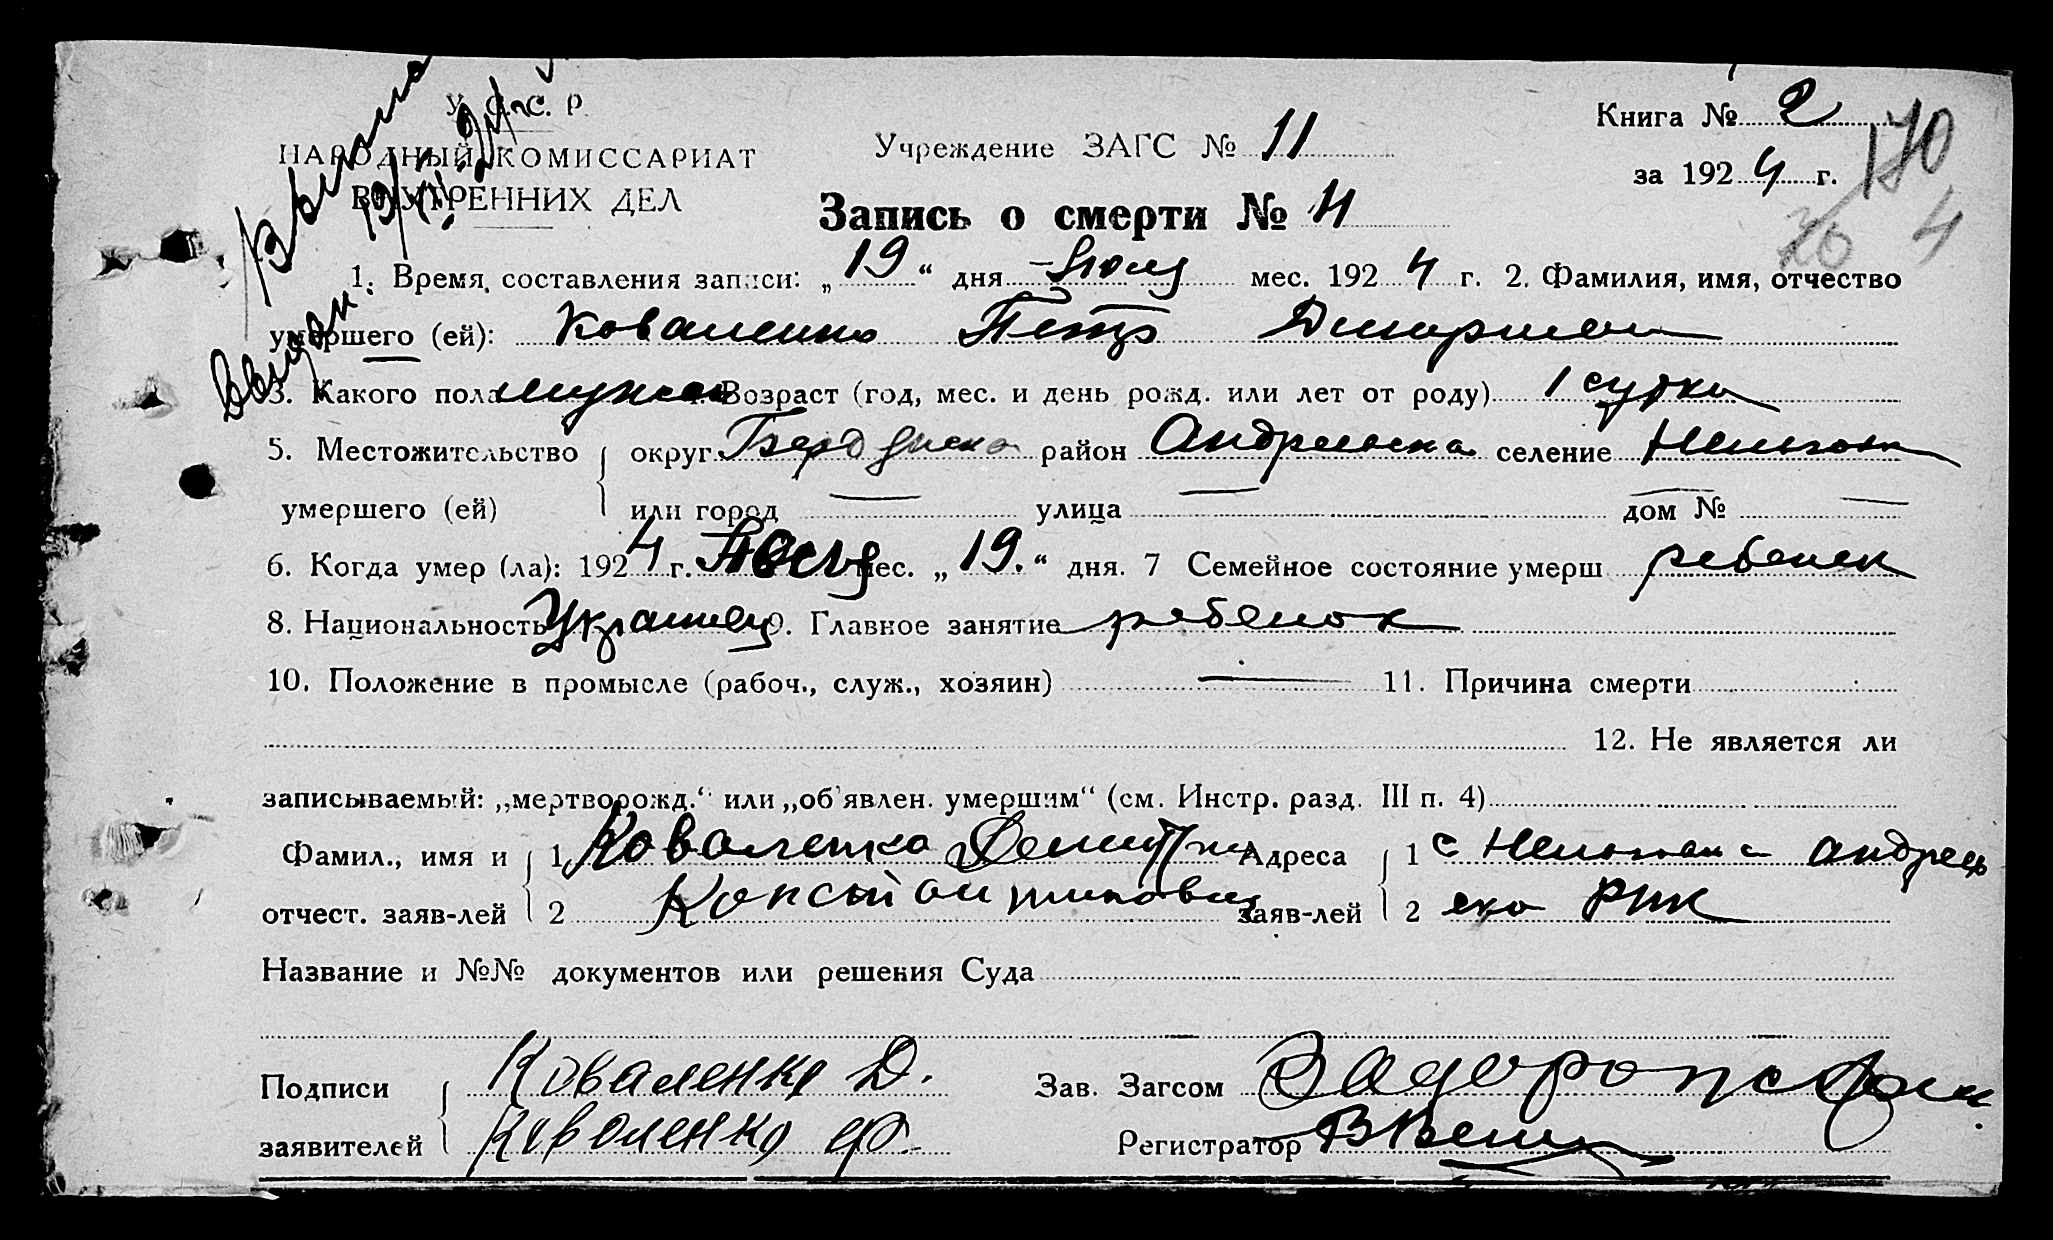 У. С. С. Р.
НАРОДНЫЙ КОМИССАРИАТ
ВНУТРЕННИХ ДЕЛ
Учреждение ЗАГС № 11
Книга № 2
за 1924 г.
170
20 4
Запись о смерти № 4
1. Время составления записи: „19“ дня мес. 1924 г. 2. Фамилия, имя, отчество
умершего (ей): Коваленко Петр
3. Какого пола мужск 4. Возраст (год, мес. и день рожд. или лет от роду) 1 сутки
5. Местожительство округ Бердянска район Андреевска селение
умершего (ей) или город — улица — дом № —
6. Когда умер (ла): 1924 г. мес. „19.“ дня. 7 Семейное состояние умерш ребенек
8. Национальность Украинец 9. Главное занятие ребенок
10. Положение в промысле (рабоч., служ., хозяин) — 11. Причина смерти
12. Не является ли
записываемый: „мертворожд.“ или „об'явлен. умершим“ (см. Инстр. разд. III п. 4)
Фамил., имя и 1 Коваленко Дмитрий Адреса 1 с андреев
отчест. заяв-лей 2 Константинович заяв-лей 2 ско РИК
Название и №№ документов или решения Суда
Подписи Коваленко Д. Зав. Загсом
заявителей Коваленко Ф. Регистратор